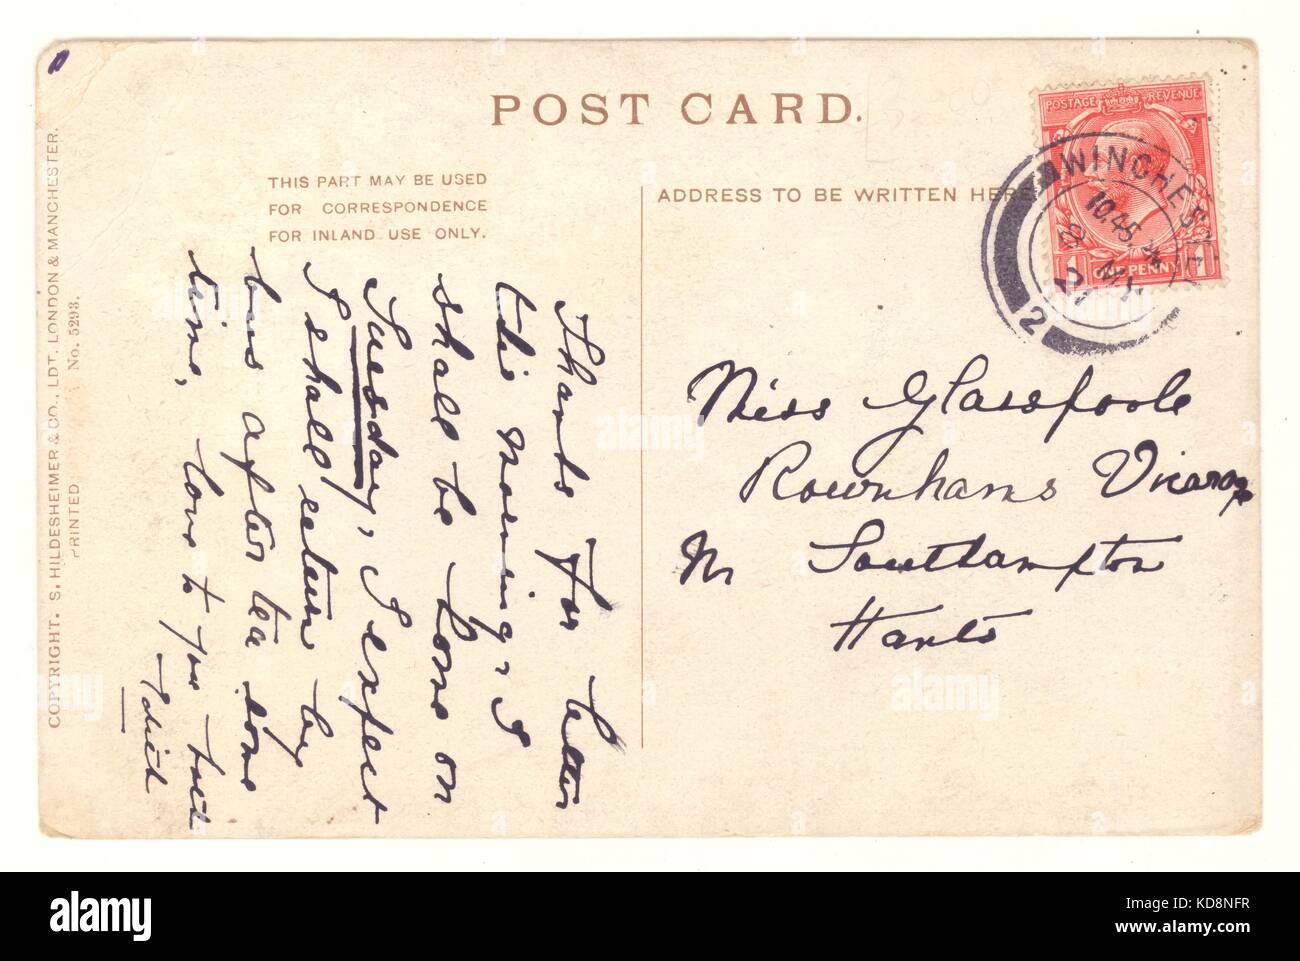 POST CARD.
THIS PART MAY BE USED
FOR CORRESPONDENCE
FOR INLAND USE ONLY.
ADDRESS TO BE WRITTEN HERE
POSTAGE REVENUE
1 ONE PENNY 1
WINCHESTER
10.45
MY
21
2
Thanks for letter
this morning, I
shall be home on
Tuesday, I expect
I shall return by
bus after tea some
time, love to you both
Edith
Miss Glasspoole
Rownhams Vicarage
Nr Southampton
Hants
COPYRIGHT. S. HILDESHEIMER & CO., LDT. LONDON & MANCHESTER.
PRINTED No. 5293.
alamy
alamy
alamy
a
alamy
Image ID: KD8NFR
www.alamy.com